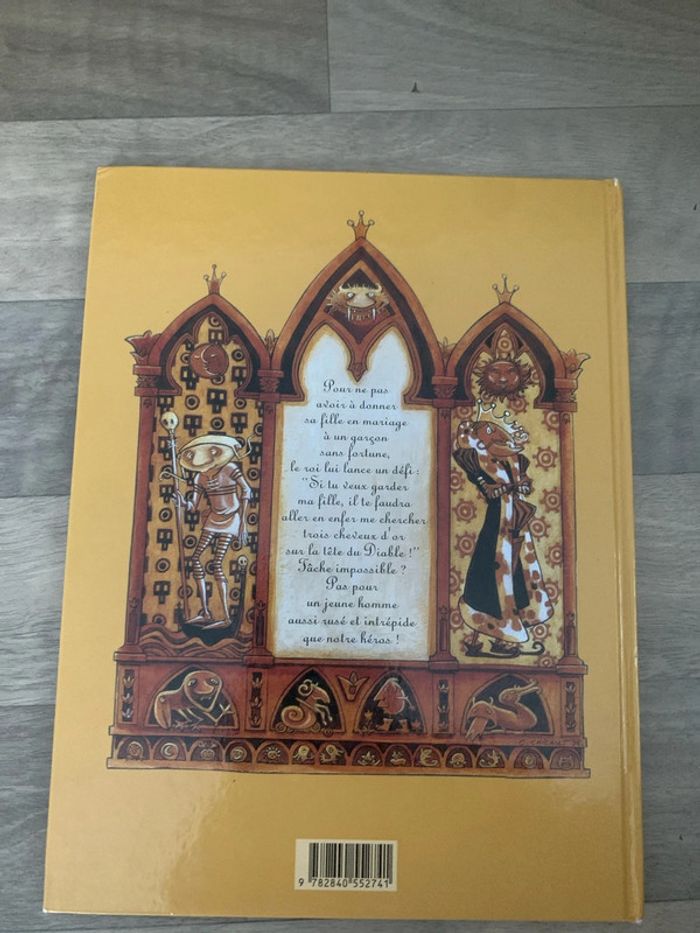 Pour ne pas
avoir à donner
sa fille en mariage
à un garçon
sans fortune,
le roi lui lance un défi :
"Si tu veux garder
ma fille, il te faudra
aller en enfer me chercher
trois cheveux d'or
sur la tête du Diable !"
Tâche impossible ?
Pas pour
un jeune homme
aussi rusé et intrépide
que notre héros !
9 782840 552741